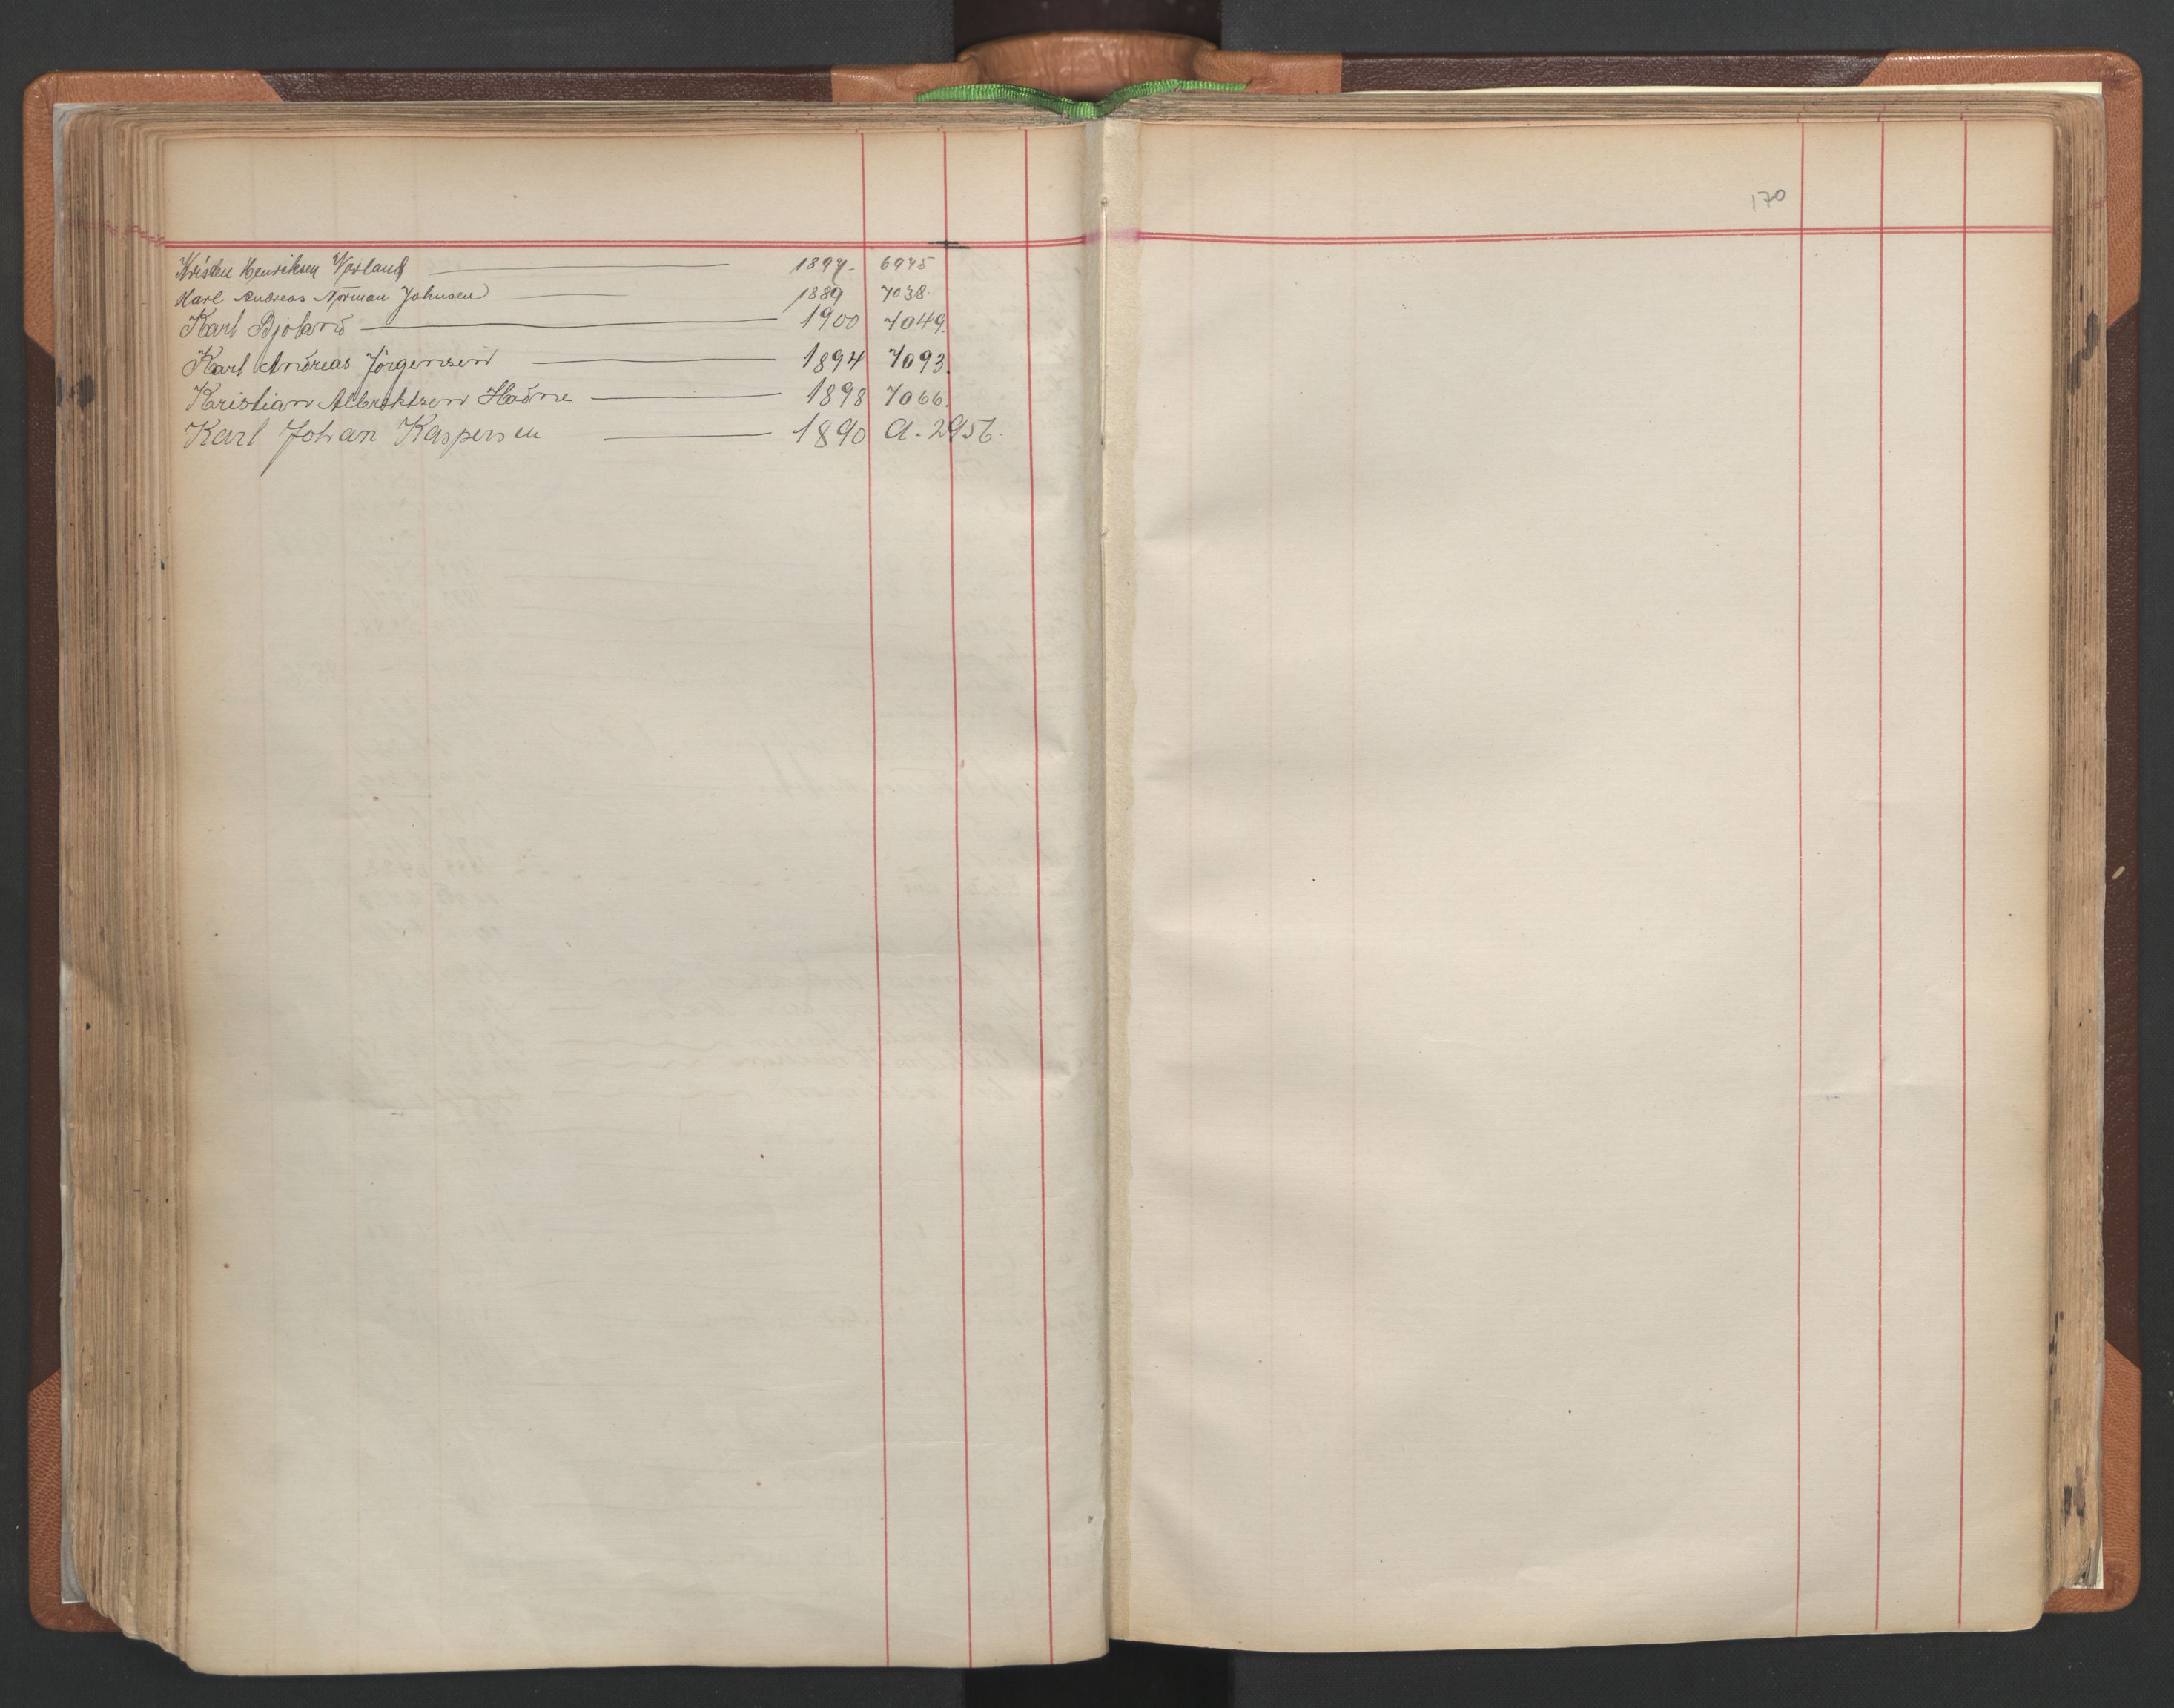 Kristen Henriksen Værland 1897 6975
Karl Andreas Norman Johnsen 1889 7038.
Karl Bjoland 1900 7049.
Karl Andreas Jörgensen 1894 7093.
Kristian Albrektsen Hadne 1898 7066.
Karl Johan Kaspersen 1890 A. 2956.
170